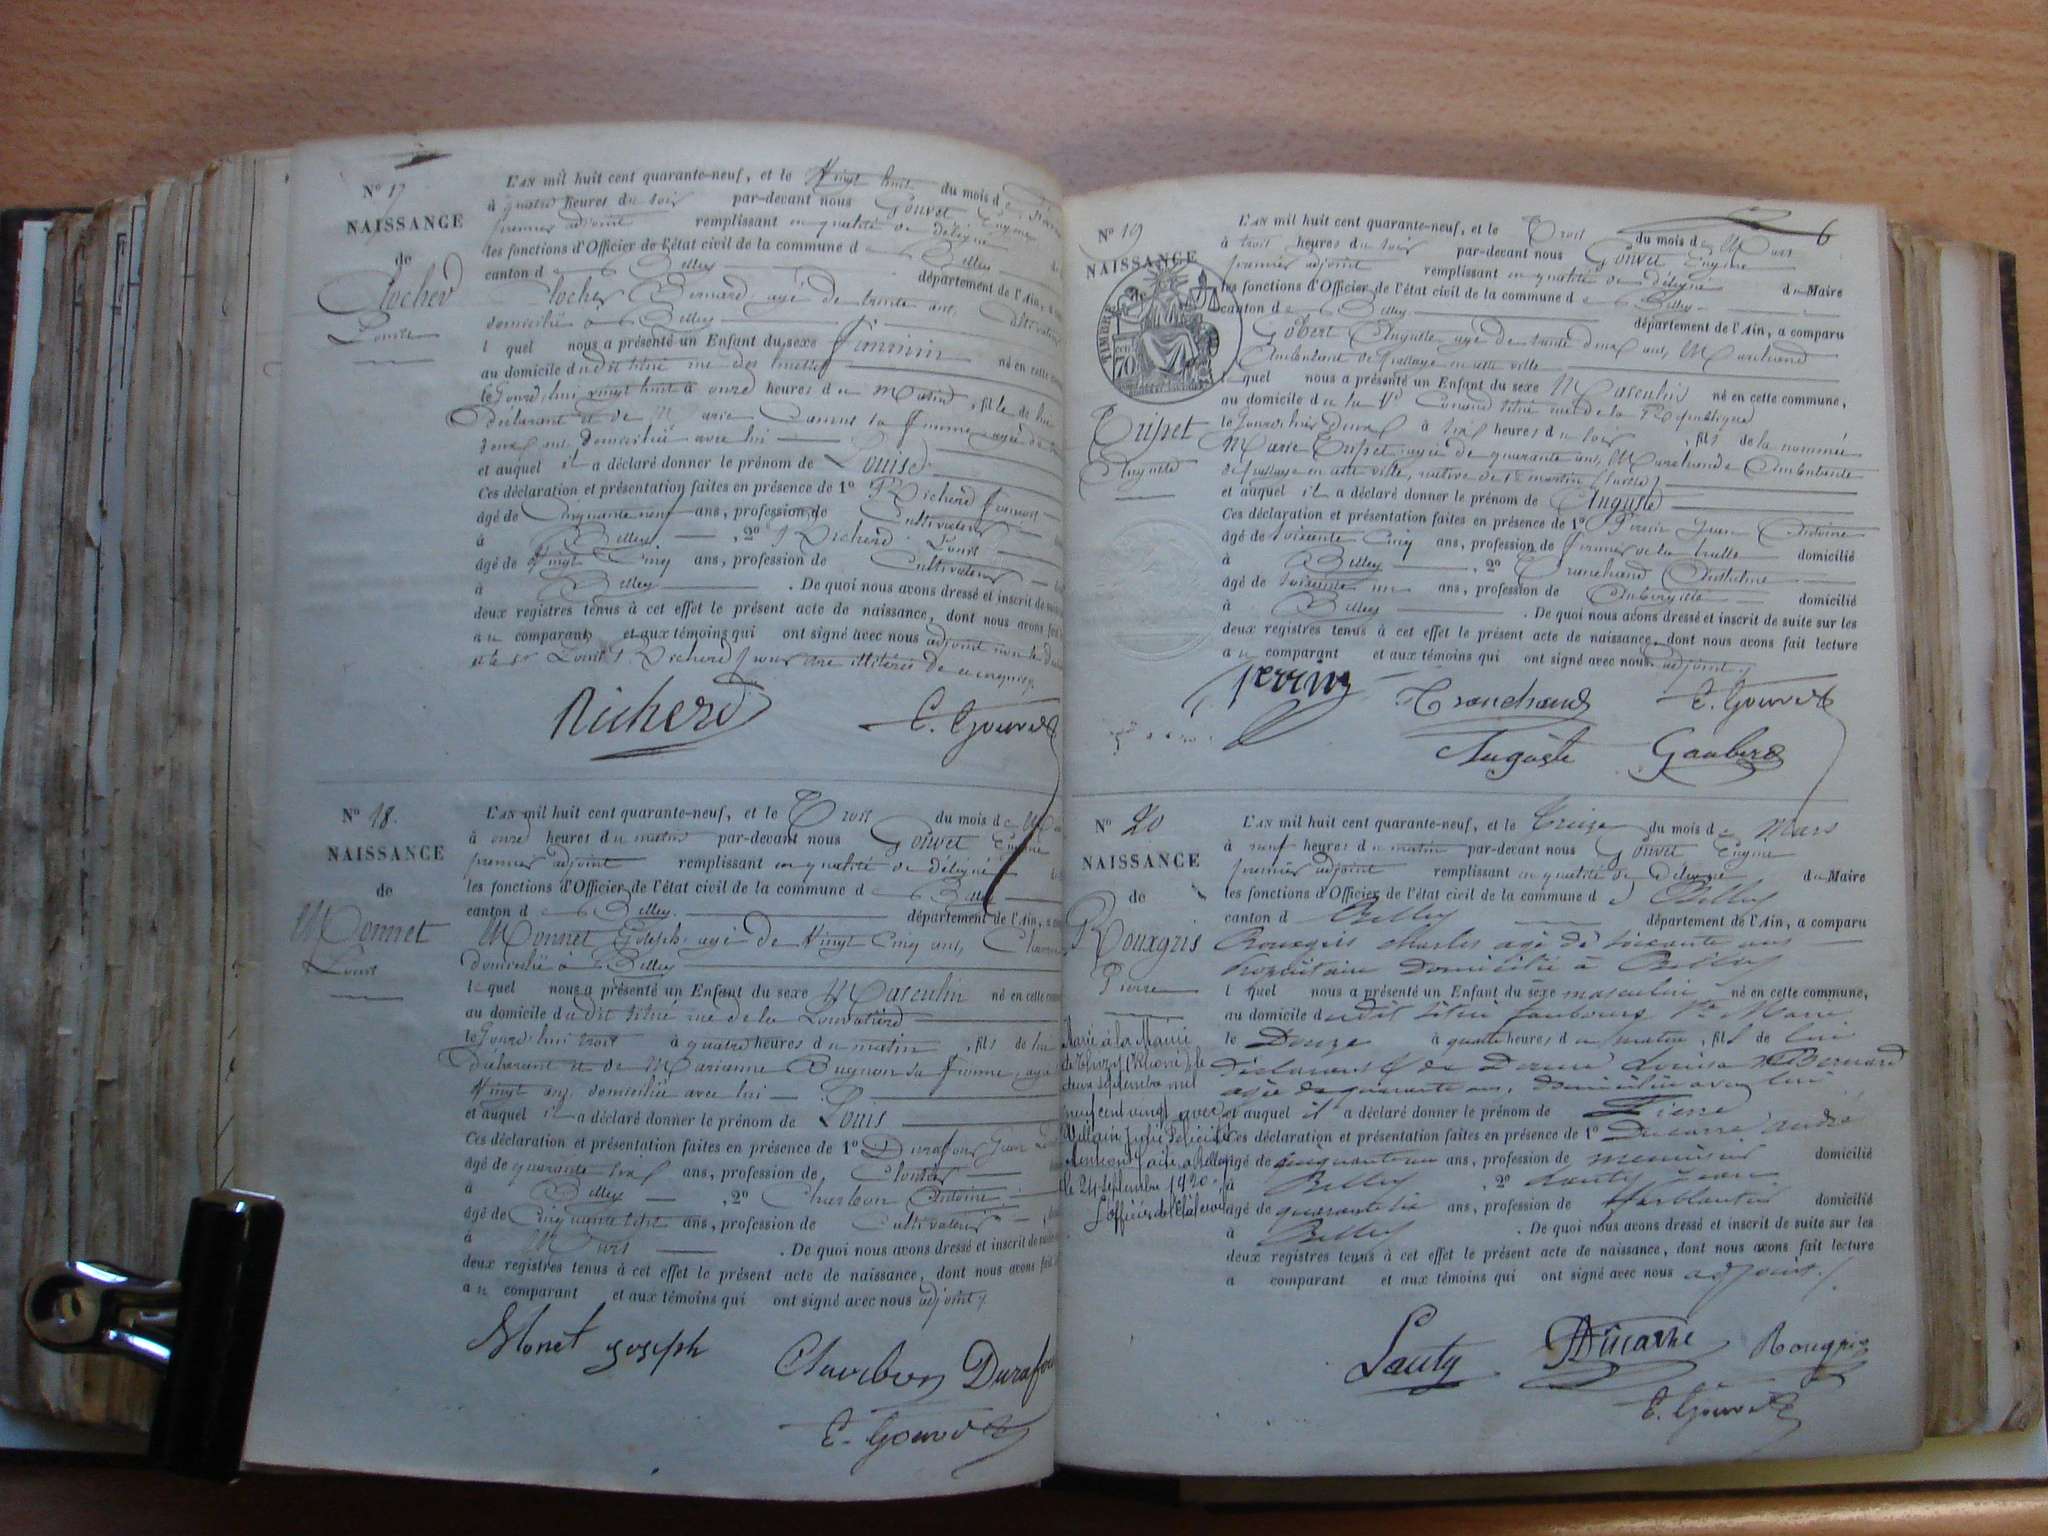 N° 17
NAISSANCE
de
Clocher
Louise
L'AN mil huit cent quarante-neuf, et le Vingt huit du mois de
à quatre heures du soir par-devant nous Gouvet Eugène
premier adjoint remplissant en qualité de délégué
les fonctions d'Officier de l'état civil de la commune de Belley
canton de Belley département de l'Ain, a
Clocher Bernard agé de trente ans, Cultivateur
domicilié à Belley
lequel nous a présenté un Enfant du sexe féminin né en cette
au domicile dudit situé rue des
le Jourd'hui vingt huit à onze heures du Matin, fille de lui
déclarant et de Marie Camus sa femme agée de
deux ans domiciliée avec lui
et auquel il a déclaré donner le prénom de Louise
Ces déclaration et présentation faites en présence de 1° Richerd
âgé de Cinquante neuf ans, profession de Cultivateur
à Belley, 2° Richerd Louis
âgé de Vingt Cinq ans, profession de Cultivateur
à Belley. De quoi nous avons dressé et inscrit de suite
deux registres tenus à cet effet le présent acte de naissance, dont nous avons fait
au comparant et aux témoins qui ont signé avec nous adjoint non le
et le Sr Louis Richerd pour être illitérés de ce enquis
Richerd E. Gouvet
N° 18.
NAISSANCE
de
Monnet
Louis
L'AN mil huit cent quarante-neuf, et le Trois du mois de
à onze heures du matin par-devant nous Gouvet Eugène
premier adjoint remplissant en qualité de délégué
les fonctions d'Officier de l'état civil de la commune de Belley
canton de Belley. département de l'Ain, a
Monnet Joseph agé de Vingt Cinq ans,
domicilié à Belley
lequel nous a présenté un Enfant du sexe Masculin né en cette
au domicile dudit situé rue de la
le Jourd'hui trois à quatre heures du matin, fils de lui
déclarant et de Marianne Bugnon sa femme, agée
Vingt ans domiciliée avec lui
et auquel il a déclaré donner le prénom de Louis
Ces déclaration et présentation faites en présence de 1° Durafour Jean
âgé de quarante trois ans, profession de Cloutier
à Belley, 2° Charbon Antoine
âgé de Cinquante sept ans, profession de Cultivateur
à Murs. De quoi nous avons dressé et inscrit de suite
deux registres tenus à cet effet le présent acte de naissance, dont nous avons fait
au comparant et aux témoins qui ont signé avec nous adjoint
Monet joseph Charbon Durafour
E. Gouvet
6
N° 19
NAISSANCE
de
TIMBRE
70
Tripet
Auguste
L'AN mil huit cent quarante-neuf, et le Trois du mois de Mars
à trois heures du soir par-devant nous Gouvet Eugène
premier adjoint remplissant en qualité de délégué du Maire
les fonctions d'Officier de l'état civil de la commune de Belley
canton de Belley département de l'Ain, a comparu
Gobert Auguste agé de trente deux ans, Marchand
Ambulant de passage en cette ville
lequel nous a présenté un Enfant du sexe Masculin né en cette commune,
au domicile de la Ve situé rue de la République
le Jourd'hier Deux à six heures du soir, fils de la nommée
Marie Tripet agée de quarante ans, Marchande Ambulante
de passage en cette ville, native de St martin
et auquel il a déclaré donner le prénom de Auguste
Ces déclaration et présentation faites en présence de 1° Perrin Jean Antoine
âgé de soixante Cinq ans, profession de fermier de la halle domicilié
à Belley, 2° Tranchand Anthelme
âgé de soixante un ans, profession de Aubergiste domicilié
à Belley. De quoi nous avons dressé et inscrit de suite sur les
deux registres tenus à cet effet le présent acte de naissance, dont nous avons fait lecture
au comparant et aux témoins qui ont signé avec nous adjoint
perrin Tranchand E. Gouvet
Auguste Gaubert
N° 20
NAISSANCE
de
Rouxgris
Pierre
Marié à la Mairie
de Thizy (Rhône) le
deux septembre mil
neuf cent vingt avec
Villain Julie Félicité
Mention faite à Belley
le 24 septembre 1920.
L'officier de l'état civil
L'AN mil huit cent quarante-neuf, et le Treize du mois de Mars
à neuf heures du matin par-devant nous Gouvet Eugène
premier adjoint remplissant en qualité de Délégué du Maire
les fonctions d'Officier de l'état civil de la commune de Belley
canton d Belley département de l'Ain, a comparu
Rouxgris charles agé de soixante ans
propriétaire domicilié à Belley
lequel nous a présenté un Enfant du sexe masculin né en cette commune,
au domicile dudit situé faubourg St Marie
le Douze à quatre heures du matin, fils de lui
déclarant & de Dame Louise Bernard
agée de quarante ans, domiciliée avec lui
et auquel il a déclaré donner le prénom de Pierre
Ces déclaration et présentation faites en présence de 1° Ducarre André
âgé de cinquante un ans, profession de menuisier domicilié
à Belley, 2° Lauty Jean
âgé de quarante six ans, profession de ferblantier domicilié
à Belley. De quoi nous avons dressé et inscrit de suite sur les
deux registres tenus à cet effet le présent acte de naissance, dont nous avons fait lecture
a comparant et aux témoins qui ont signé avec nous adjoint./.
Lauty Ducarre Rougris
E. Gouvet